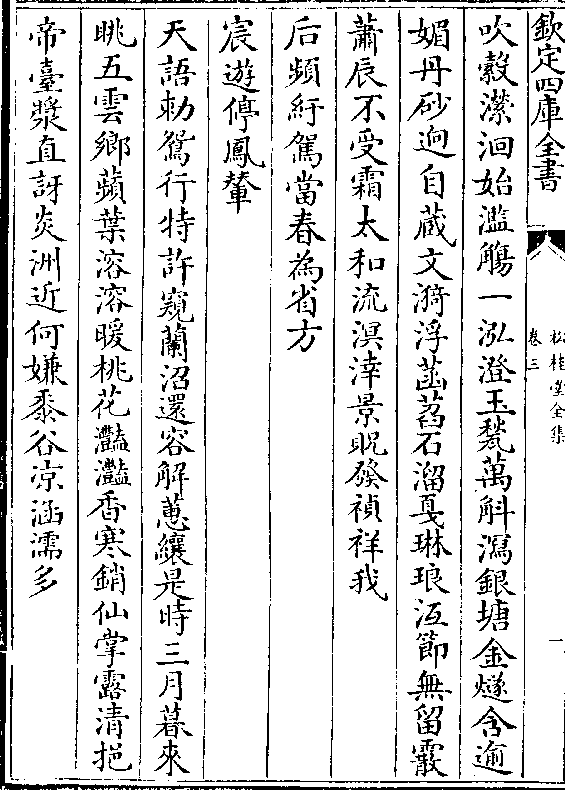 欽定四庫全書
松桂堂全集
卷三
一
吹縠瀠洄始濫觴一泓澄玉甃萬斛瀉銀塘金燧含逾
媚丹砂迥自蔵文漪浮菡萏石溜戛琳琅沍節無留霰
蕭辰不受霜太和流溟涬景貺發禎祥我
后頻紆駕當春為省方
宸遊停鳳輦
天語勅鴛行特許窺蘭沼還容解蕙纕是時三月暮來
眺五雲鄉蘋葉溶溶暖桃花灩灩香寒銷仙掌露清挹
帝臺漿直訝炎洲近何嫌黍谷凉涵濡多